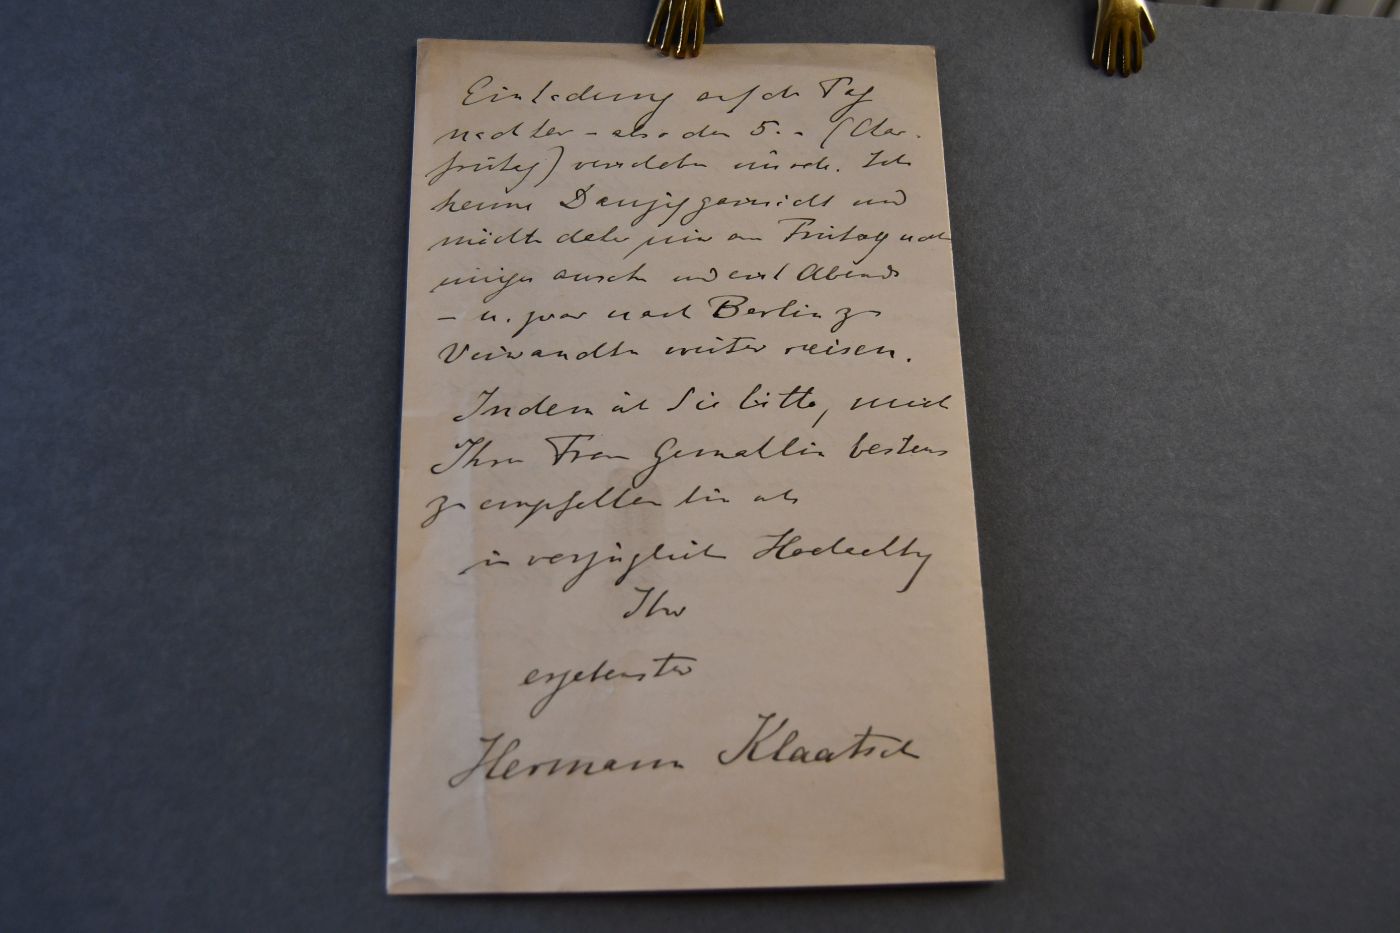 Einladung auf den Tag
nachher – also den 5. – (Char-
freitag) verschoben würde. Ich
kenne Danzig gar nicht und
möchte daher mir am Freitag noch
einiges ansehen und erst Abends
– u. zwar nach Berlin zu
Verwandten weiter reisen.
Indem ich Sie bitte, mich
Ihrer Frau Gemahlin bestens
zu empfehlen bin ich
in vorzüglicher Hochachtg
Ihr
ergebenster
Hermann Klaatsch